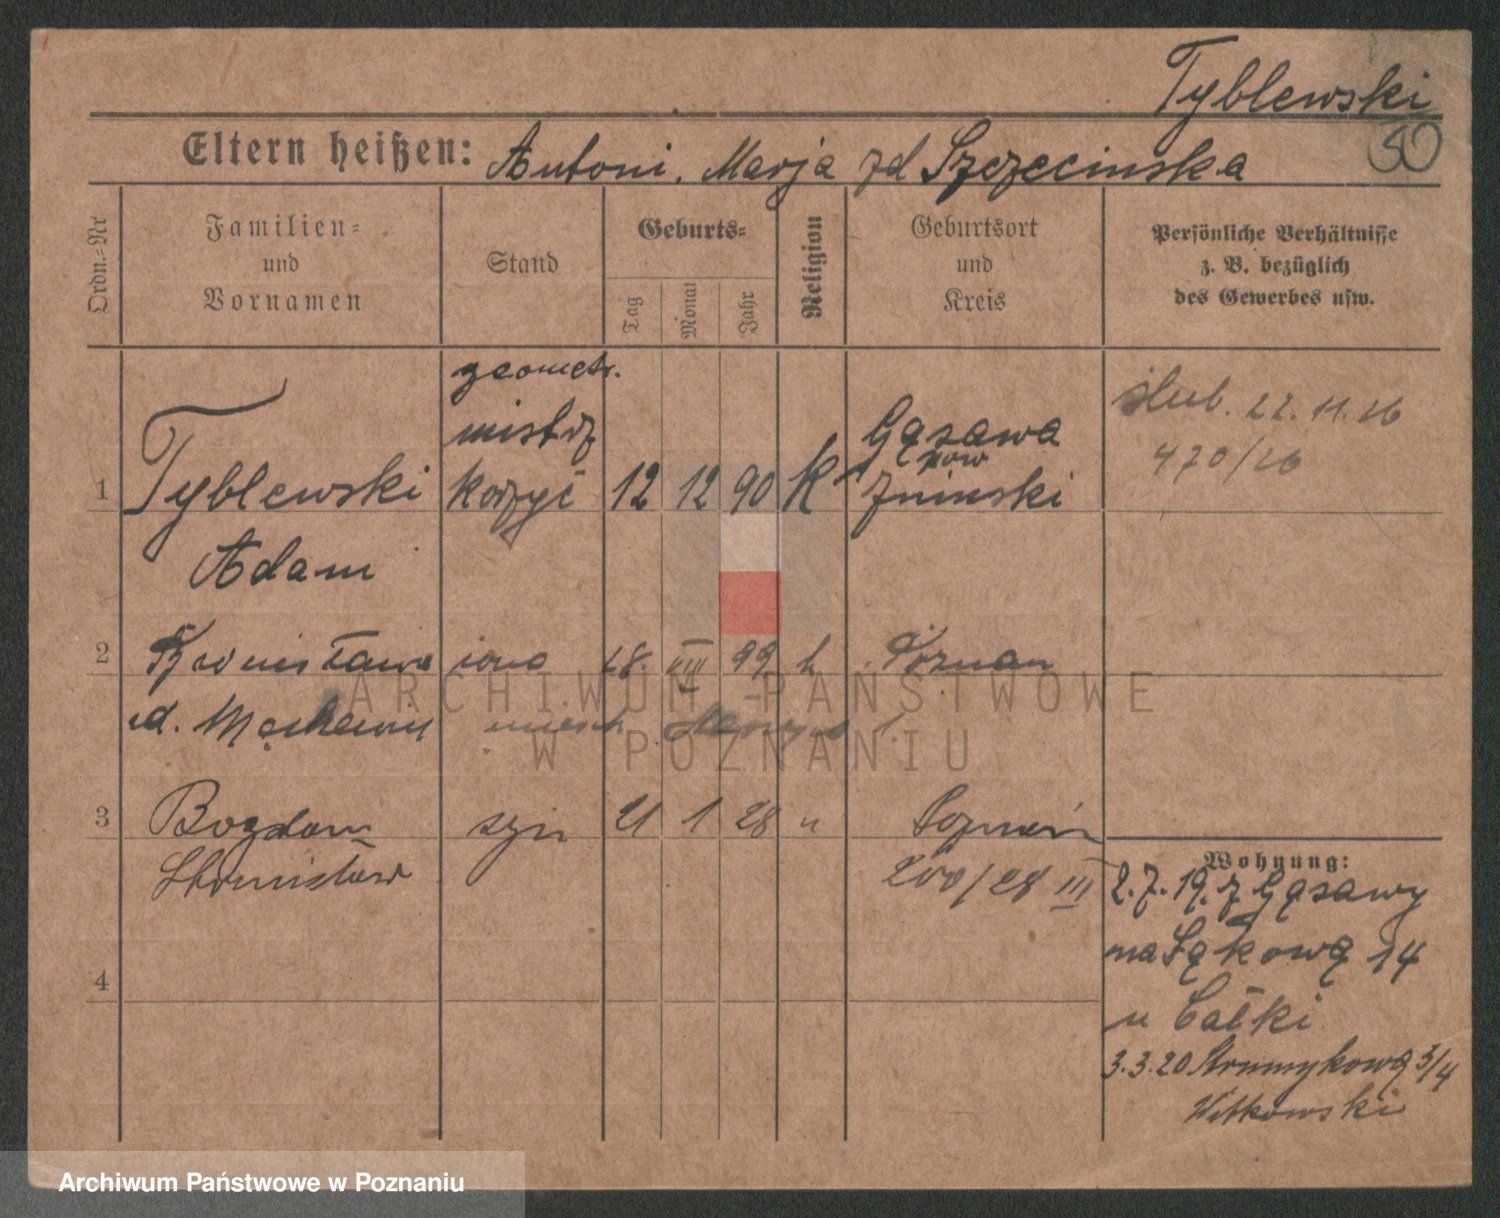 Tyblewski
50
Eltern heißen: Antoni, Marja zd Szczecinska
Ordn.=Nr
Familien=
und
Vornamen
Stand
Geburts=
Tag
Monat
Jahr
Religion
Geburtsort
und
Kreis
Persönliche Verhältnisse
z. B. bezüglich
des Gewerbes usw.
geometr.
mistrz
1 Tyblewski 12 12 90 K
Gąsawa
pow
żninski
ślub. 22. 11. 26
470/26
Adam
2 Bronisława żona 18. VIII 99 k Poznan
3 Bogdan syn 21 1 28 " Poznań
Stanisław
200/28 III
4
Wohnung:
2.7.19. z Gąsawy
na Łąkową 14
u Całki
3.3.20 Strumykową 3/4
Witkowski
ARCHIWUM PAŃSTWOWE
W POZNANIU
Archiwum Państwowe w Poznaniu